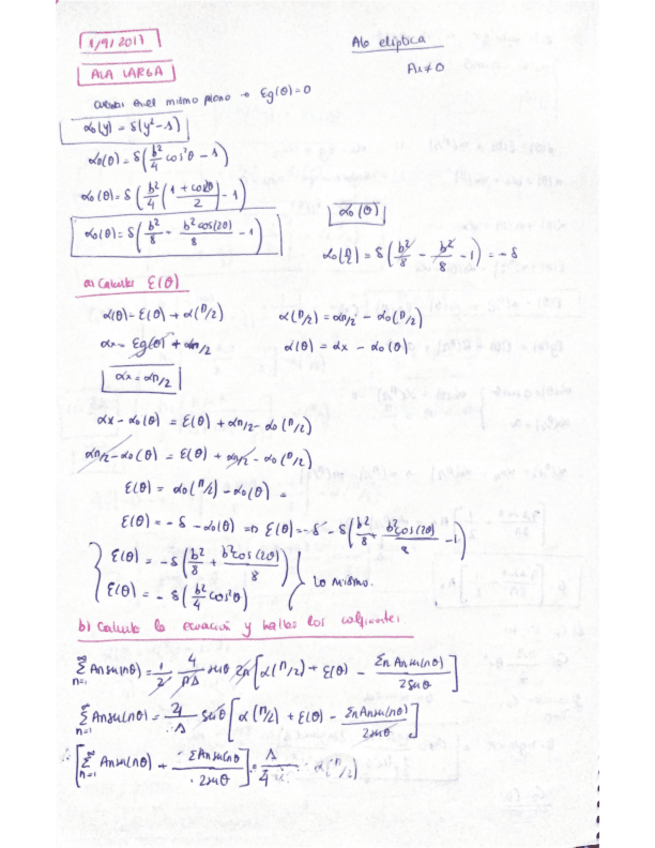 1/9/2017
Ala elíptica
ALA LARGA
A1≠0
mismo plano → εg(θ)=0
α0(y) = δ(y²-1)
α0(θ) = δ(b²/4 cos²θ - 1)
α0(θ) = δ(b²/4 (1 + cos2θ / 2) - 1)
α0(θ)
α0(θ) = δ(b²/8 + b² cos(2θ)/8 - 1)
α0(π/2) = δ(b²/8 - b²/8 - 1) = -δ
a) Calcular ε(θ)
α(θ) = ε(θ) + α(π/2)
α(π/2) = απ/2 - α0(π/2)
αx = εg(θ) + απ/2
α(θ) = αx - α0(θ)
αx = απ/2
αx - α0(θ) = ε(θ) + απ/2 - α0(π/2)
απ/2 - α0(θ) = ε(θ) + απ/2 - α0(π/2)
ε(θ) = α0(π/2) - α0(θ) =
ε(θ) = -δ - α0(θ) => ε(θ) = -δ - δ(b²/8 + b² cos(2θ)/8 - 1)
ε(θ) = -δ(b²/8 + b² cos(2θ)/8)
Lo mismo.
ε(θ) = -δ(b²/4 cos²θ)
b) Calcule la ecuación y hallar los coeficientes
∞Σn=1 An sin(nθ) = 1/2 4/πΛ sinθ 2π[α(π/2) + ε(θ) - Σn An sin(nθ) / 2 sinθ]
∞Σn=1 An sin(nθ) = 4/Λ sinθ [α(π/2) + ε(θ) - Σn An sin(nθ) / 2 sinθ]